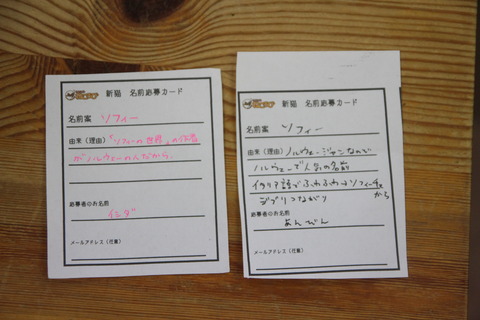 新猫 名前応募カード
名前案 ソフィー
由来（理由）「ソフィーの世界」の作者
がノルウェーの人だから。
応募者のお名前
イシダ
メールアドレス（任意）
新猫 名前応募カード
名前案 ソフィー
由来（理由）ノルウェージャンなので
ノルウェーで人気の名前
イタリア語でふわふわはソフィーチェ
から
ジブリつながり
応募者のお名前
あんびん
メールアドレス（任意）